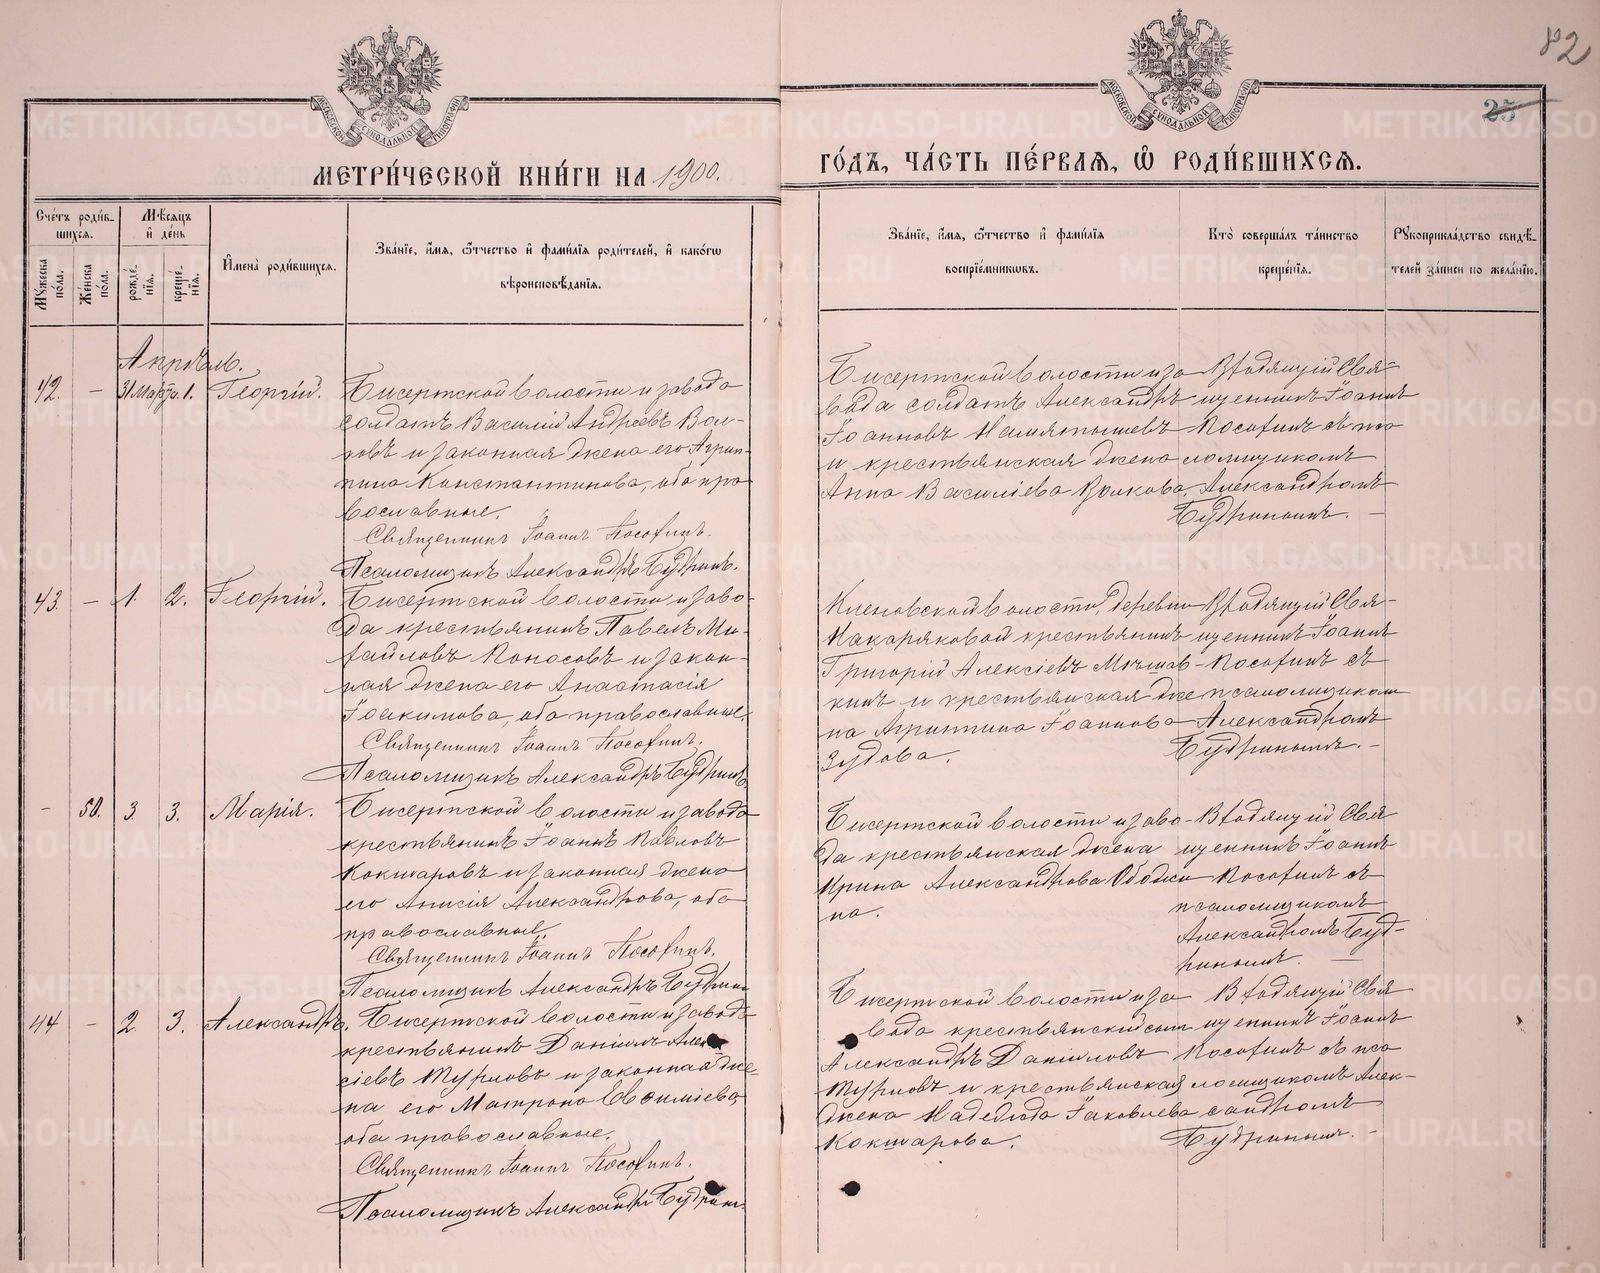 82
25
МЕТРИ́ЧЕСКОЙ КНИ́ГИ НА 1900.
ГО́ДЪ, ЧА́СТЬ ПЕ́РВАѦ, Ѽ РОДИ́ВШИХСѦ.
Сче́тъ роди́в-
шихся.
Му́жеска по́ла.
Же́нска по́ла.
Мѣ́сяцъ
и҆ де́нь
рожде́нїя.
креще́нїя.
И҆мена̀ роди́вшихся.
Зва́нїе, и҆́мя, ѻ҆́тчество и҆ фами́лїя роди́телей, и҆ како́гѡ
вѣроисповѣ́данїя.
Зва́нїе, и҆́мя, ѻ҆́тчество и҆ фами́лїя
воспрїе́мникѡвъ.
Кто̀ соверша́лъ та́инство
креще́нїя.
Рукоприкла́дство свидѣ́-
телей за́писи по жела́нїю.
Апрѣль.
42. – 31 Марта. 1. Георгій.
Бисертской волости и завода
солдатъ Василій Андреевъ Вол-
ковъ и законная жена его Агрип-
пина Константинова, оба пра-
вославные.
Священникъ Іоаннъ Посохинъ.
Псаломщикъ Александръ Будринъ.
Бисертской волости и за
вода солдатъ Александръ
Іоанновъ
и крестьянская жена
Анна Василіева Волкова.
Входящій Свя-
щенникъ Іоаннъ
Посохинъ съ пса
ломщикомъ
Александромъ
Будринымъ. –
43. – 1. 2. Георгій.
Бисертской волости и заво-
да крестьянинъ Павелъ Ми-
хайловъ Поносовъ и закон-
ная жена его Анастасія
Іоакимова, оба православные.
Священникъ Іоаннъ Посохинъ.
Псаломщикъ Александръ Будринъ
Кленовской волости, деревни
Макаряковой крестьянинъ
Григорій Алексіевъ
кинъ и крестьянская же
на Агриппина Іоаннова
Зудова.
Входящій Свя-
щенникъ Іоаннъ
Посохинъ съ
псаломщикомъ
Александромъ
Будринымъ. –
– 50. 3 3. Марія.
Бисертской волости и завода
крестьянинъ Іоаннъ Павловъ
Кокшаровъ и законная жена
его Анисія Александрова, оба
православные.
Священникъ Іоаннъ Посохинъ.
Псаломщикъ Александръ Будрин
Бисертской волости и заво-
да крестьянская жена
Ирина Александрова
на.
Входящій Свя
щенникъ Іоаннъ
Посохинъ съ
псаломщикомъ
Александромъ Буд-
ринымъ. –
44 – 2 3. Александръ.
Бисертской волости и завода
крестьянинъ Даніилъ Алек
сіевъ Турловъ и законная же-
на его Матрона Евѳиміева,
оба православные.
Священникъ Іоаннъ Посохинъ.
Псаломщикъ Александръ Будрин.
Бисертской волости и за
вода крестьянскій сынъ
Александръ Даніиловъ
Турловъ и крестьянская
жена Надежда Іаковлева
Кокшарова.
Входящій Свя
щенникъ Іоаннъ
Посохинъ съ пса
ломщикомъ Алек-
сандромъ
Будринымъ. –